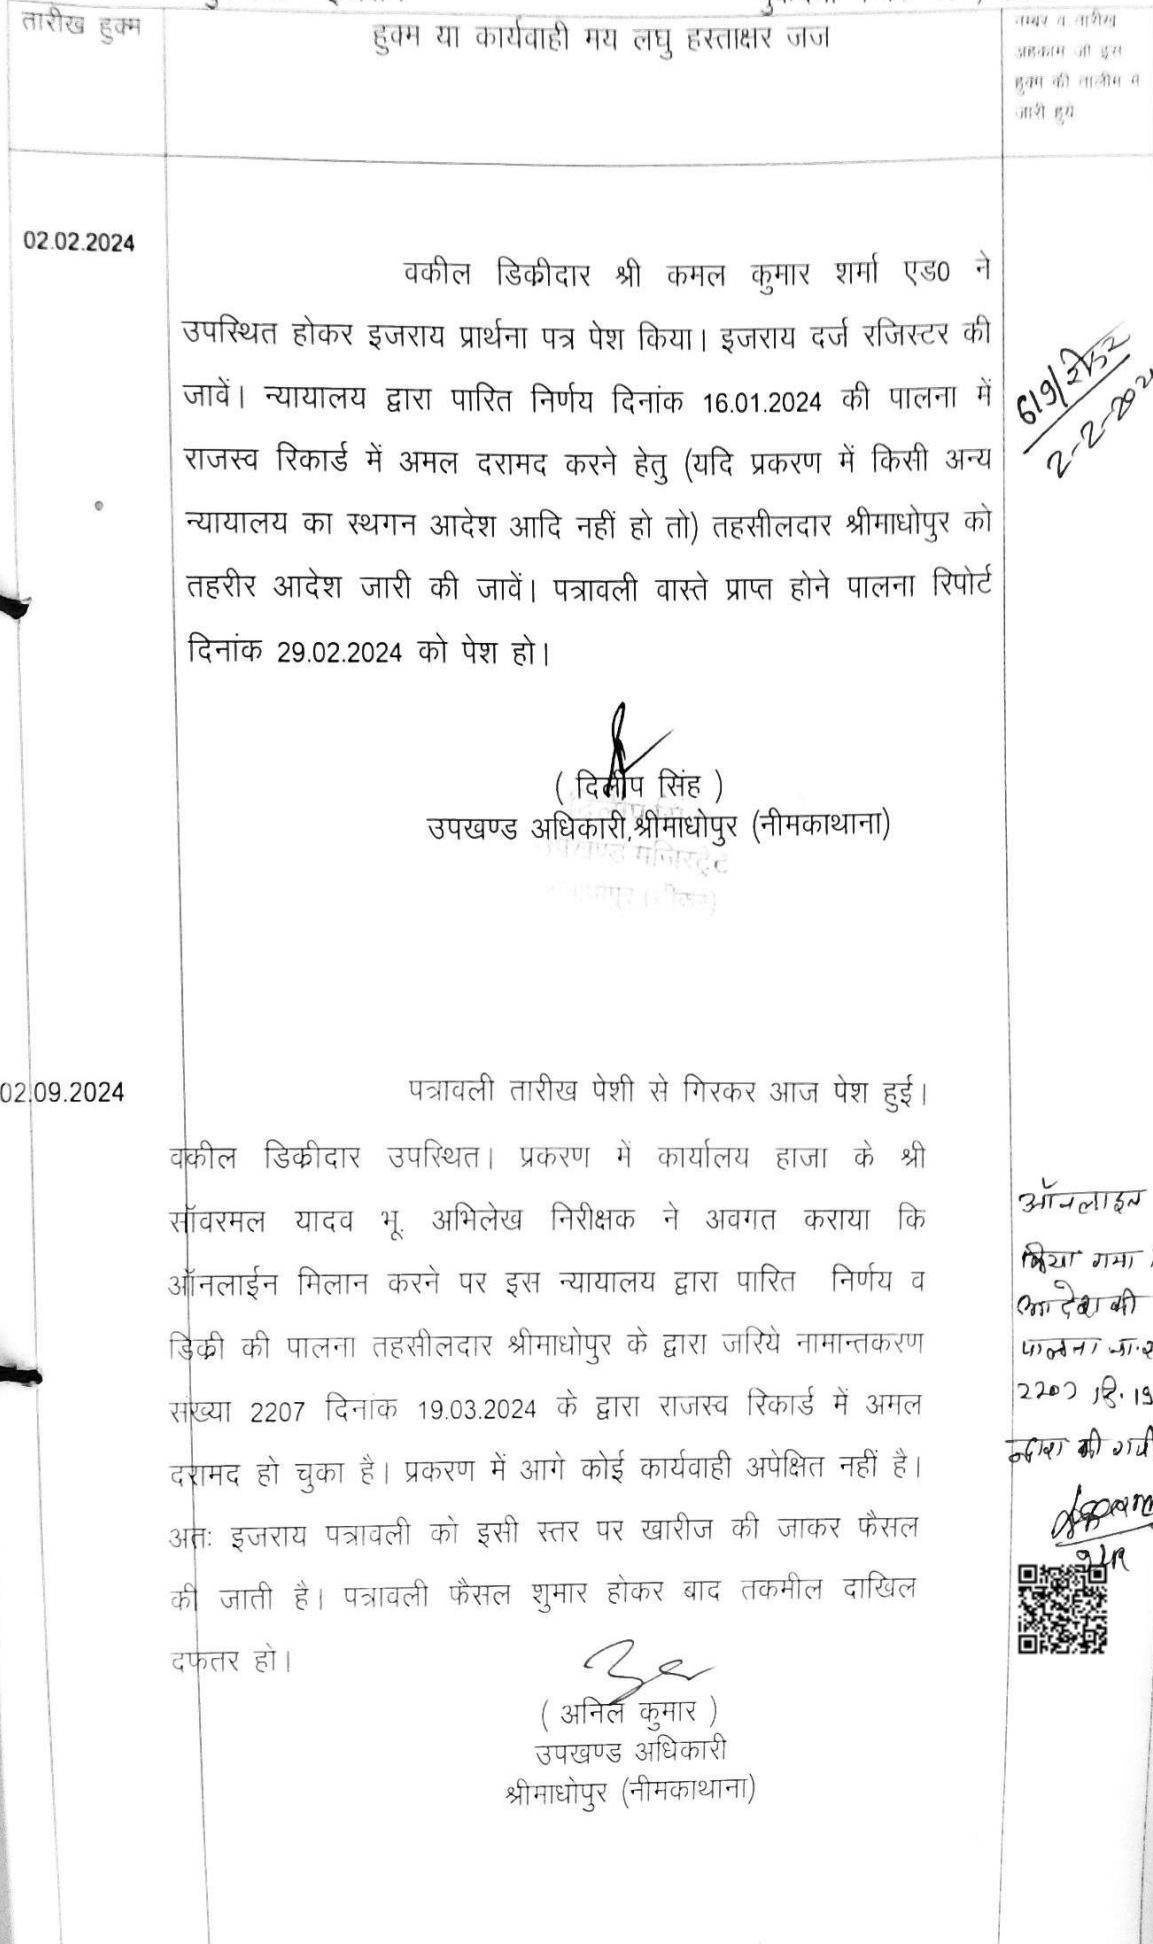 तारीख हुक्म
हुक्म या कार्यवाही मय लघु हस्ताक्षर जज
नम्बर व तारीख
अहकाम जो इस
हुक्म की तालीम व
जारी हुये
02.02.2024
वकील डिकीदार श्री कमल कुमार शर्मा एड0 ने
उपस्थित होकर इजराय प्रार्थना पत्र पेश किया। इजराय दर्ज रजिस्टर की
जावें। न्यायालय द्वारा पारित निर्णय दिनांक 16.01.2024 की पालना में
राजस्व रिकार्ड में अमल दरामद करने हेतु (यदि प्रकरण में किसी अन्य
न्यायालय का स्थगन आदेश आदि नहीं हो तो) तहसीलदार श्रीमाधोपुर को
तहरीर आदेश जारी की जावें। पत्रावली वास्ते प्राप्त होने पालना रिपोर्ट
दिनांक 29.02.2024 को पेश हो।
619/रीडर
2-2-202
( दिलीप सिंह )
उपखण्ड अधिकारी,श्रीमाधोपुर (नीमकाथाना)
उपखण्ड मजिस्ट्रेट
02.09.2024
पत्रावली तारीख पेशी से गिरकर आज पेश हुई।
वकील डिकीदार उपस्थित। प्रकरण में कार्यालय हाजा के श्री
सॉवरमल यादव भू. अभिलेख निरीक्षक ने अवगत कराया कि
ऑनलाईन मिलान करने पर इस न्यायालय द्वारा पारित निर्णय व
डिकी की पालना तहसीलदार श्रीमाधोपुर के द्वारा जरिये नामान्तकरण
संख्या 2207 दिनांक 19.03.2024 के द्वारा राजस्व रिकार्ड में अमल
दरामद हो चुका है। प्रकरण में आगे कोई कार्यवाही अपेक्षित नहीं है।
अतः इजराय पत्रावली को इसी स्तर पर खारीज की जाकर फैसल
की जाती है। पत्रावली फैसल शुमार होकर बाद तकमील दाखिल
दफतर हो।
ऑनलाइन
किया गया
आदेश की
पालना ना.
2207 दि. 19
द्वारा की गयी
( अनिल कुमार )
उपखण्ड अधिकारी
श्रीमाधोपुर (नीमकाथाना)